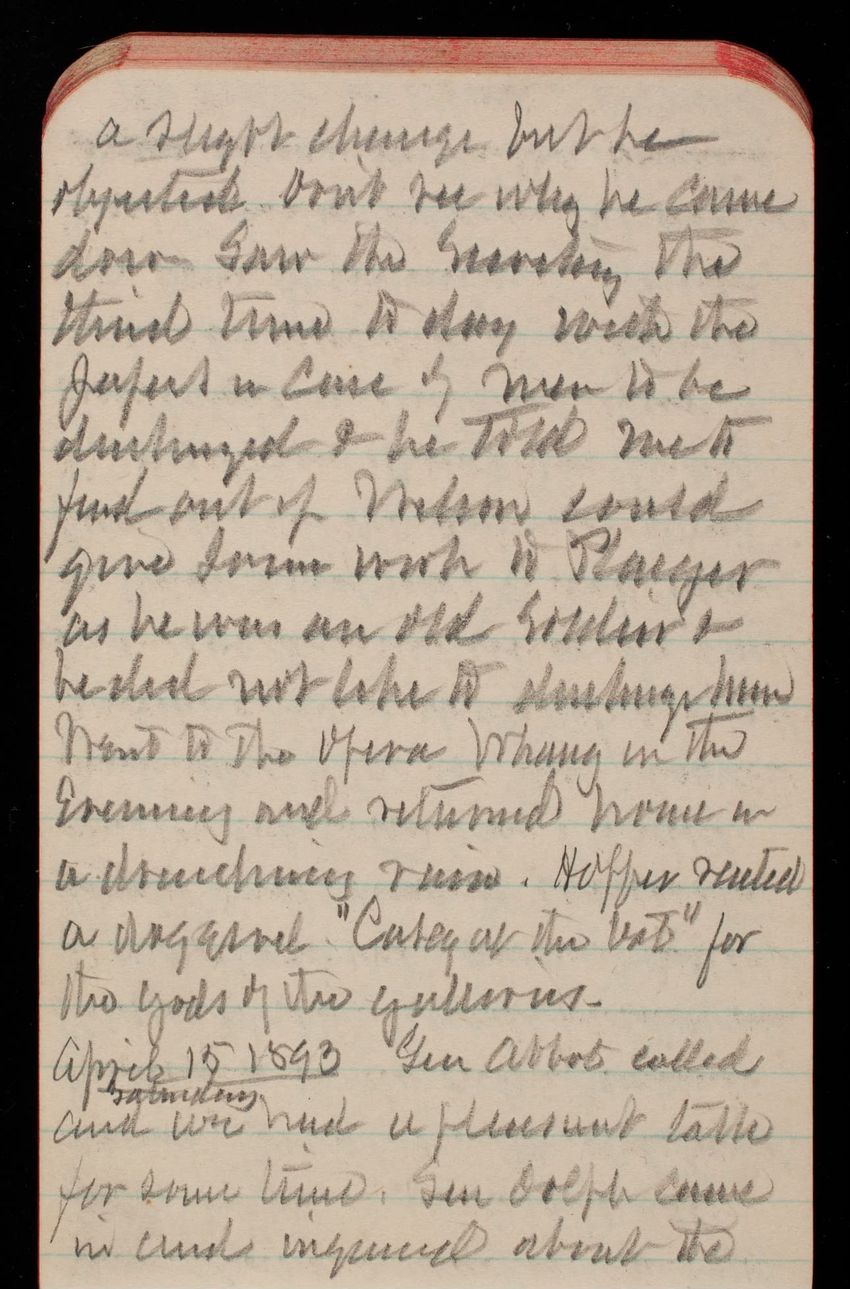 a slight change but he
objected. Don't see why he came
down Saw the Secretary the
third time to day with the
in case of men to be
discharged & he told me to
find out if Nelson could
give some work to Plaeger
as he was an old Soldier &
he did not like to discharge him
Went to the Opera Whang in the
Evening and returned home in
a drenching rain. Hopper recited
a doggerel "Casey at the bat" for
the gods of the galleries-
April 15 1893 Gen Abbot called
Saturday
and we had a pleasant talk
for some time. Gen Dolph came
in and inquired about the